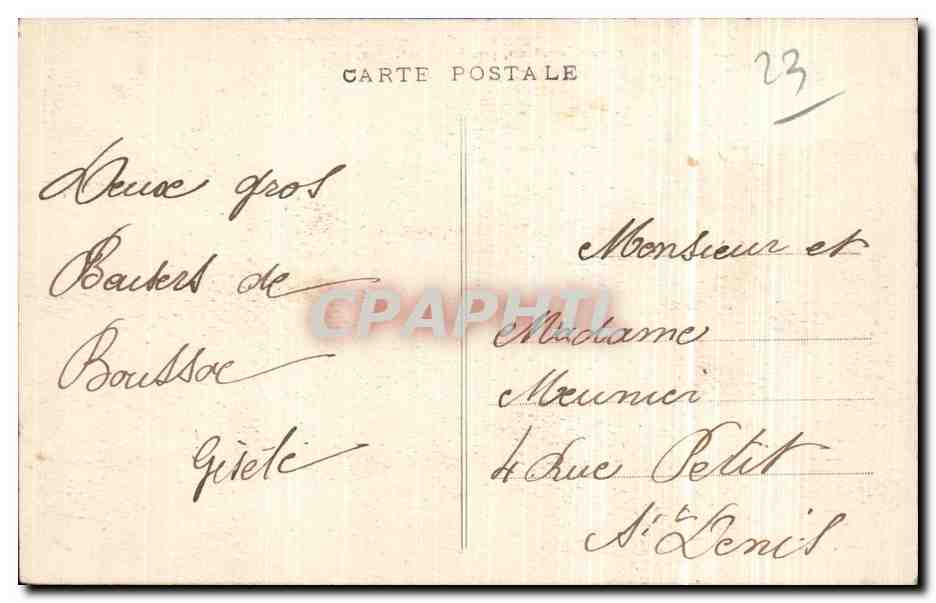 CARTE POSTALE
23
Deux gros
Baisers de
Boussac
Gisèle
Monsieur et
Madame
Meunier
4 Rue Petit
St Denis
CPAPHIL